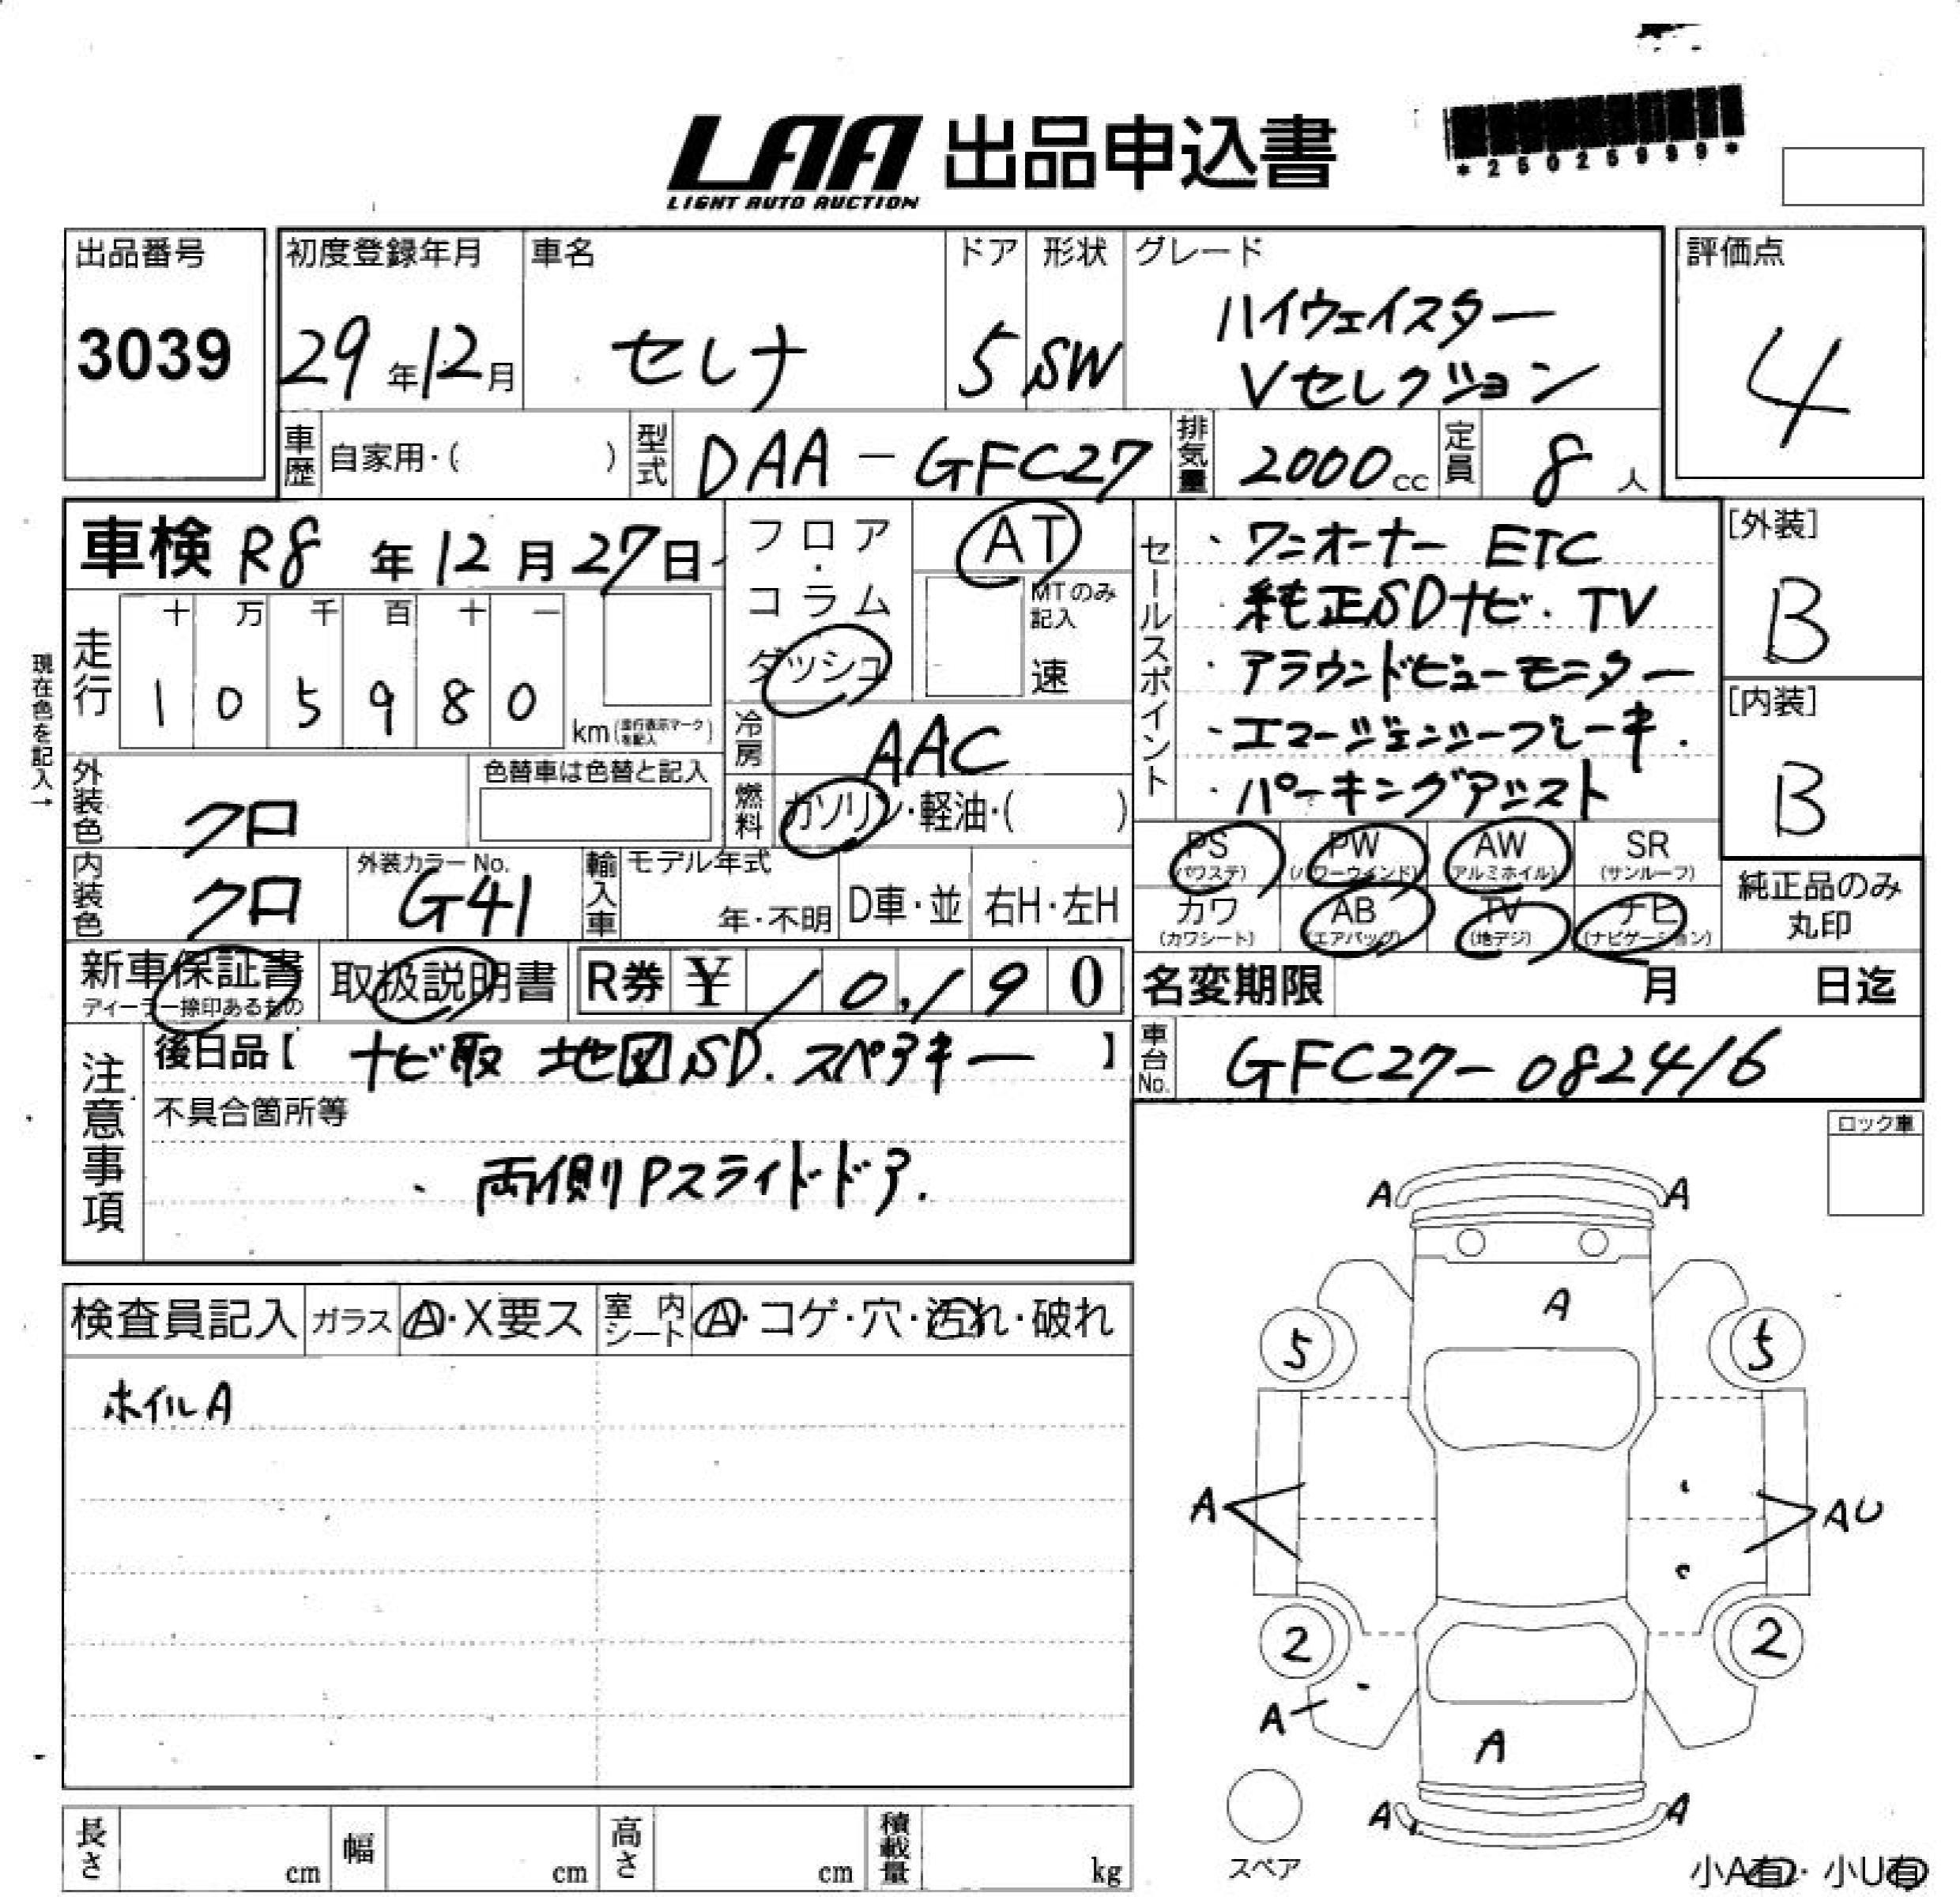 *25025999*
LAA 出品申込書
LIGHT AUTO AUCTION
出品番号
3039
初度登録年月
29年12月
車名
セレナ
ドア
5
形状
SW
グレード
ハイウェイスター
Vセレクション
評価点
4
車歴 自家用・( )
型式 DAA-GFC27
排気量 2000cc
定員 8人
車検 R8年12月27日
フロア・コラム
ダッシュ
AT
MTのみ記入
速
セールスポイント
・ワンオーナー ETC
・純正SDナビ・TV
・アラウンドビューモニター
・エマージェンシーブレーキ.
・パーキングアシスト
[外装]
B
[内装]
B
現在色を記入→
走行
十 万 千 百 十 一
1 0 5 9 8 0
km(走行表示マークを記入)
冷房 AAC
燃料 ガソリン・軽油・( )
外装色 クロ
色替車は色替と記入
内装色 クロ
外装カラーNo.
G41
輸入車
モデル年式
年・不明
D車・並
右H・左H
PS
(パワステ)
PW
(パワーウインド)
AW
(アルミホイル)
SR
(サンルーフ)
カワ
(カワシート)
AB
(エアバッグ)
TV
(地デジ)
ナビ
(ナビゲーション)
純正品のみ
丸印
新車保証書
ディーラー捺印あるもの
取扱説明書
R券 ¥ 10,190
名変期限 月 日迄
注意事項
後日品【 ナビ取 地図SD. スペアキー 】
車台No. GFC27-082416
不具合箇所等
・両側Pスライドドア.
ロック車
検査員記入
ガラス Ⓐ・X要ス
室内シート Ⓐ・コゲ・穴・汚れ・破れ
ホイルA
A A
A
5 5
A AU
2 2
A
A
A A
スペア
小A有・小U有
長さ cm
幅 cm
高さ cm
積載量 kg